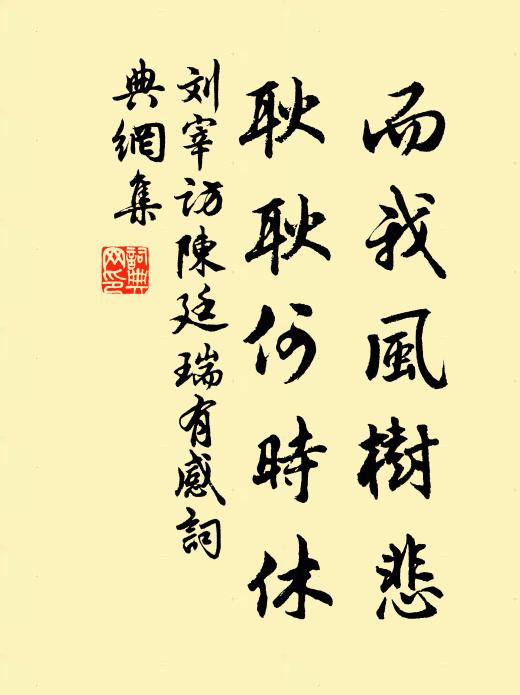 而我風樹悲
耿耿何時休
刘宰访陳廷瑞有感詞
典網集
詞典網印